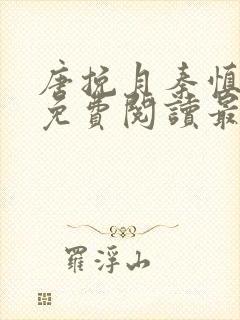 唐挽月秦慎
免費閱讀最
羅浮山